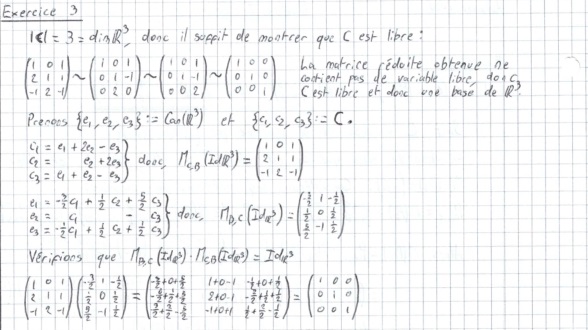 Exercice 3
|C| = 3 = dim ℝ³, donc il suffit de montrer que C est libre :
(1 0 1 / 2 1 1 / -1 2 -1) ~ (1 0 1 / 0 1 -1 / 0 2 0) ~ (1 0 1 / 0 1 -1 / 0 0 2) ~ (1 0 0 / 0 1 0 / 0 0 1) La matrice réduite obtenue ne
contient pas de variable libre, donc
C est libre et donc une base de ℝ³.
Prenons {e₁, e₂, e₃} := Can(ℝ³) et {c₁, c₂, c₃} := C.
c₁ = e₁ + 2e₂ - e₃
c₂ = e₂ + 2e₃ } donc, M_C,B(Idℝ³) = (1 0 1 / 2 1 1 / -1 2 -1)
c₃ = e₁ + e₂ - e₃
e₁ = -3/2 c₁ + 1/2 c₂ + 5/2 c₃
e₂ = c₁ - c₃ } donc, M_B,C(Idℝ³) = (-3/2 1 -1/2 / 1/2 0 1/2 / 5/2 -1 1/2)
e₃ = -1/2 c₁ + 1/2 c₂ + 1/2 c₃
Vérifions que M_B,C(Idℝ³) · M_C,B(Idℝ³) = Idℝ³
(1 0 1 / 2 1 1 / -1 2 -1) (-3/2 1 -1/2 / 1/2 0 1/2 / 5/2 -1 1/2) = (-3/2+0+5/2 1+0-1 -1/2+0+1/2 / -6/2+1/2+5/2 2+0-1 -2/2+1/2+1/2 / 3/2+2/2-5/2 -1+0+1 1/2+2/2-1/2) = (1 0 0 / 0 1 0 / 0 0 1)